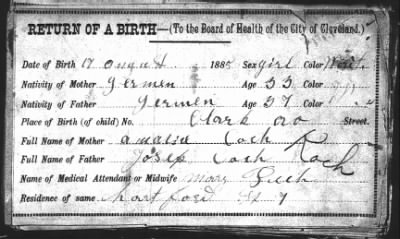 RETURN OF A BIRTH—(To the Board of Health of the City of Cleveland.)
Date of Birth 17 august 1885 Sex girl Color
Nativity of Mother Germen Age 33 Color
Nativity of Father Germen Age 37 Color
Place of Birth (of child) No. Clark av Street.
Full Name of Mother amalia Coch
Full Name of Father Josep Coch Koch
Name of Medical Attendant or Midwife mary
Residence of same hart ford St 7